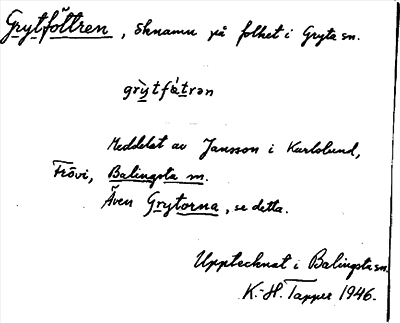 Grytföttren, öknamn på folket i Gryta sn.
grỳtfǿ̀trən
Meddelat av Jansson i Karlslund,
Frövi, Balingsta sn.
Även Grytorna, se detta.
Upptecknat i Balingsta sn.
K.-H. Tapper 1946.